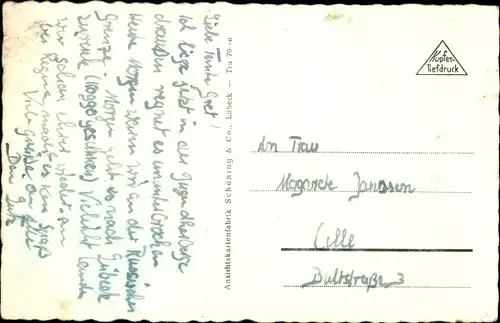 Liebe Tante Gret!
Ich liege jetzt in der Jugendherberge
draußen regnet es ununterbrochen
Heute Morgen waren wir an der Russischen
Grenze. Morgen geht es nach Lübeck
zurück Vielleicht landen
wir schon eher wieder an
bei Regen macht es kein Spaß
Viele Grüße an alle
Dein
Ansichtskartenfabrik Schöning & Co., Lübeck — Tra 79
Kupfer-
Tiefdruck
An Frau
Margarete Janssen
Celle
Bultstraße 3